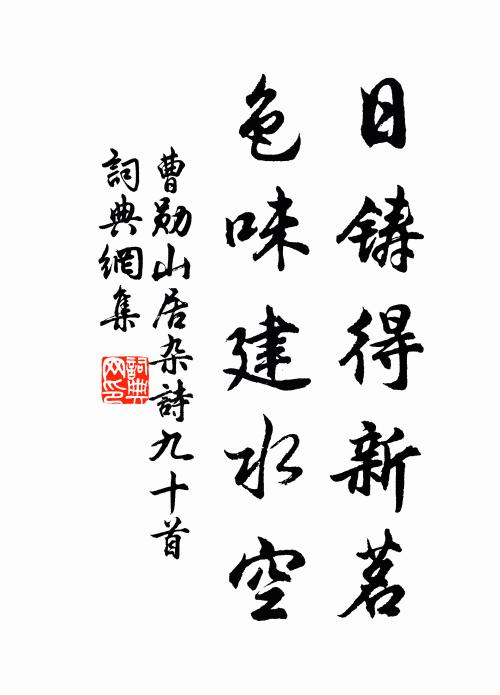 日铸得新茗
色味建水空
曹勋山居杂詩九十首
詞典網集
詞典网印